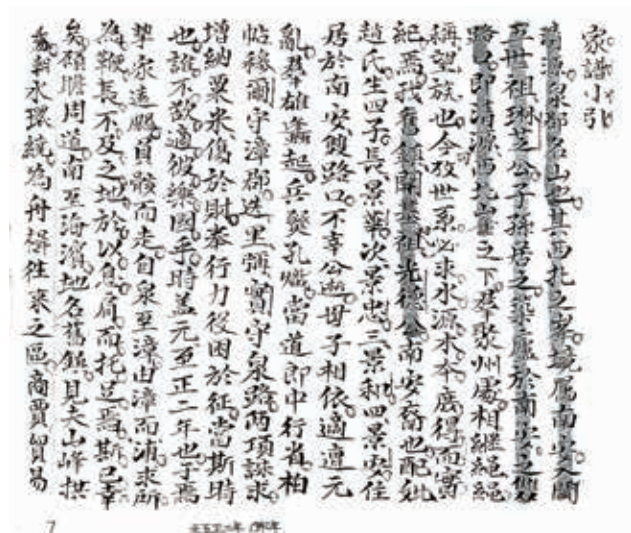 家譜小引
清源泉郡名山也其西北之岑境屬南安入閩
五世祖琳芝公子孫居之築廬於南安之雙
路口即清源西北山之下羣聚州處相繼繩繩
稱望族也今攷世系必求水源木本庶得而當
紀焉我舊鎮開基祖光德公南安裔也配妣
趙氏生四子長景葉次景忠三景和四景安住
居於南安雙路口不幸公逝母子相依適遭元
亂羣雄蠭起兵燹孔熾當道即中行省柏
帖穆爾守漳郡迭里彌實守泉路兩項誅求
增納粟米傷於財奉行力役困於征當斯時
也誰不欲適彼樂國乎時蓋元至正二年也于焉
挈家遠颺負骸而走自泉至漳由漳而浦求所
為鞭長不及之地於以息肩而托足焉斯已幸
矣顧瞻周道南至海濱地名舊鎮見夫山峰拱
秀水環繞為舟楫往來之區商賈貿易
7